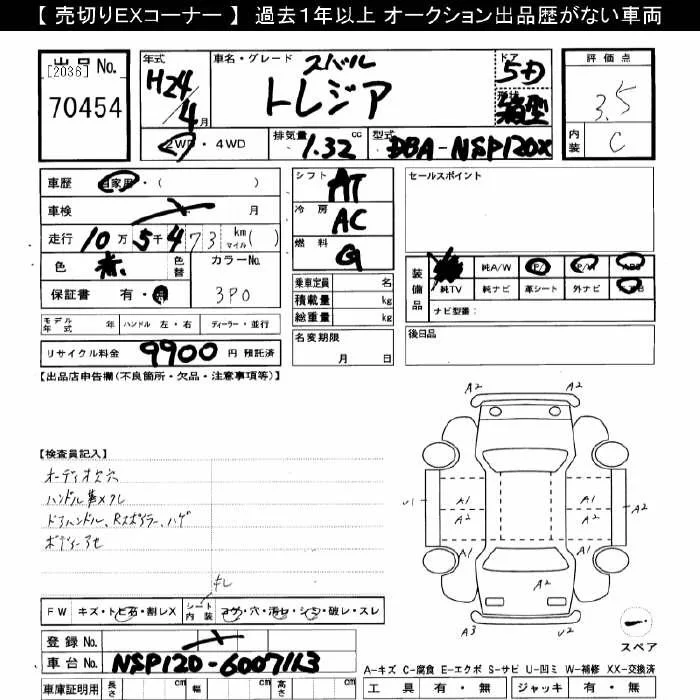 【 売切りEXコーナー 】 過去1年以上 オークション出品歴がない車両
出品 No.
[2036]
70454
年式
H24/4月
車名・グレード
スバル
トレジア
ドア
5D
形状
箱型
評価点
3.5
内装
C
2WD・4WD
排気量
1.32 cc
型式
DBA-NSP120X
車歴 自家用・( )
車検 月
走行 10万 5千 473 km マイル( )
色 赤 色替 カラーNo.
保証書 有・無 3P0
モデル年式 年 ハンドル 左・右 ディーラー・並行
リサイクル料金 9900 円 預託済
シフト AT
冷房 AC
燃料 G
乗車定員 名
積載量 kg
総重量 kg
名変期限
月 日
セールスポイント
装備品
純A/W P/S P/W ABS
純TV 純ナビ 革シート 外ナビ
ナビ型番:
後日品
【出品店申告欄(不良箇所・欠品・注意事項等)】
【検査員記入】
オーディオ欠穴
ハンドル革メクレ
ドアハンドル、Rスポイラー、ハゲ
ボディーアセ
FW キズ・トビ石・割レX シート内装 コゲ・穴・汚レ・シミ・破レ・スレ
登録 No.
車台 No. NSP120-6007113
車庫証明用 長さ cm 幅 cm 高さ cm
A2
A2
U1
A1
A2
A1
A1
A2
A1
A2
A2
A3
U2
スペア
A-キズ C-腐食 E-エクボ S-サビ U-凹ミ W-補修 XX-交換済
工具 有・無 ジャッキ 有・無